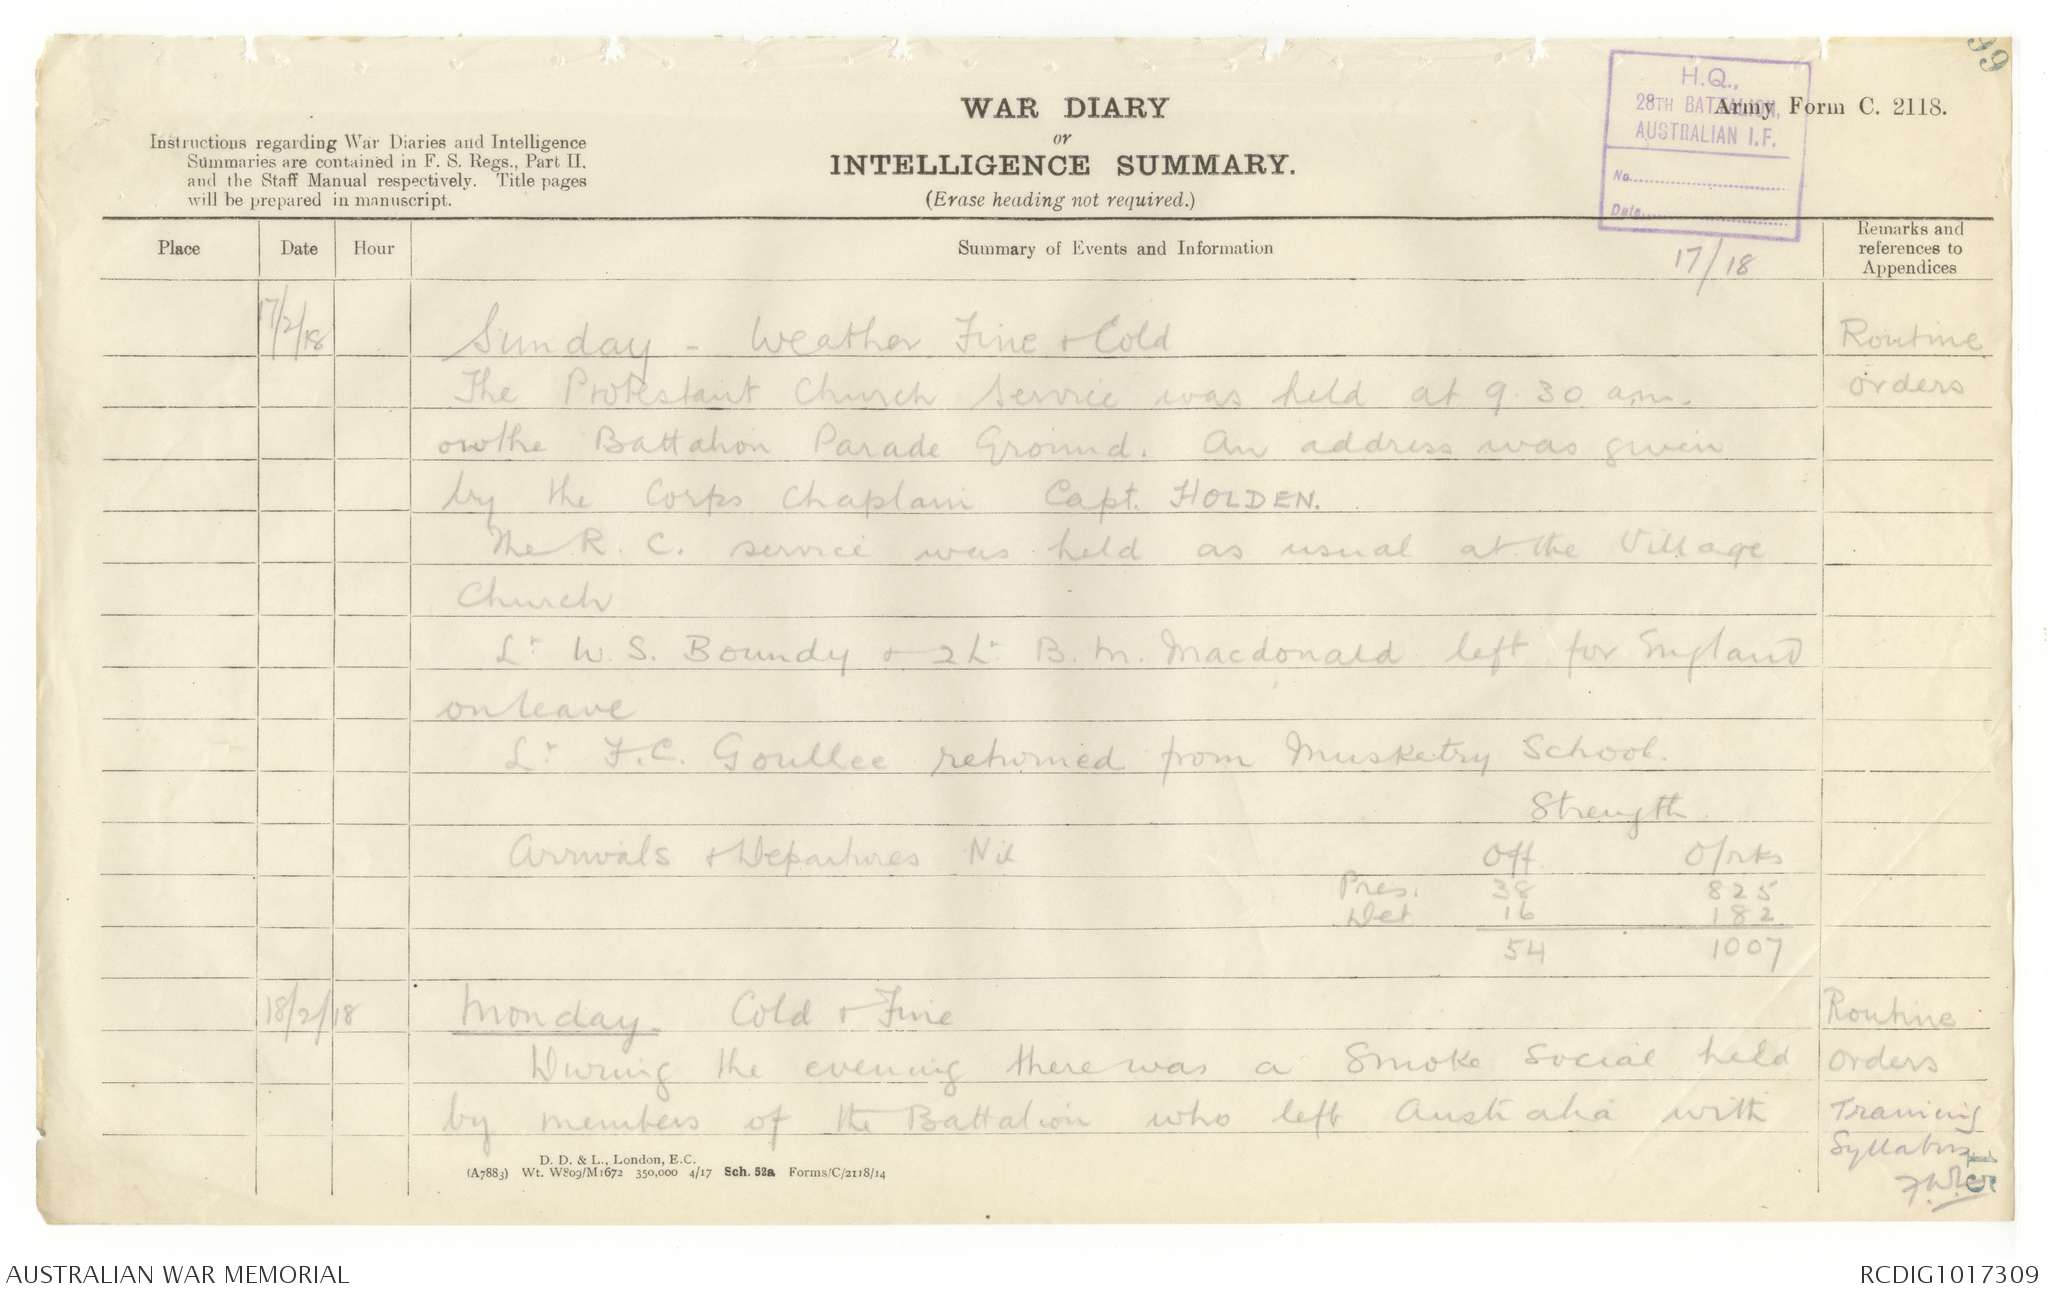 99
H.Q.,
28TH BATTALION,
AUSTRALIAN I.F.
No.
Date
Army Form C. 2118.
WAR DIARY
or
INTELLIGENCE SUMMARY.
(Erase heading not required.)
Instructions regarding War Diaries and Intelligence
Summaries are contained in F. S. Regs., Part II.
and the Staff Manual respectively. Title pages
will be prepared in manuscript.
Place Date Hour Summary of Events and Information Remarks and references to Appendices
17/18
17/2/18 Sunday - Weather Fine + Cold Routine
The Protestant Church Service was held at 9.30 a.m. orders
on the Battalion Parade Ground. An address was given
by the Corps Chaplain Capt. HOLDEN.
The R. C. service was held as usual at the Village
Church
Lt W. S. Boundy + 2 Lt B. M. Macdonald left for England
on leave
Lt F. C. Goullee returned from Musketry School.
Strength
Arrivals + Departures Nil Off. O/rks
Pres. 38 825
Det 16 182
54 1007
18/2/18 Monday. Cold + Fine Routine
During the evening there was a Smoke Social held orders
by members of the Battalion who left Australia with Training
Syllabus
15
D. D. & L., London, E.C.
(A7883) Wt. W809/M1672 350,000 4/17 Sch. 52a Forms/C/2118/14
AUSTRALIAN WAR MEMORIAL RCDIG1017309